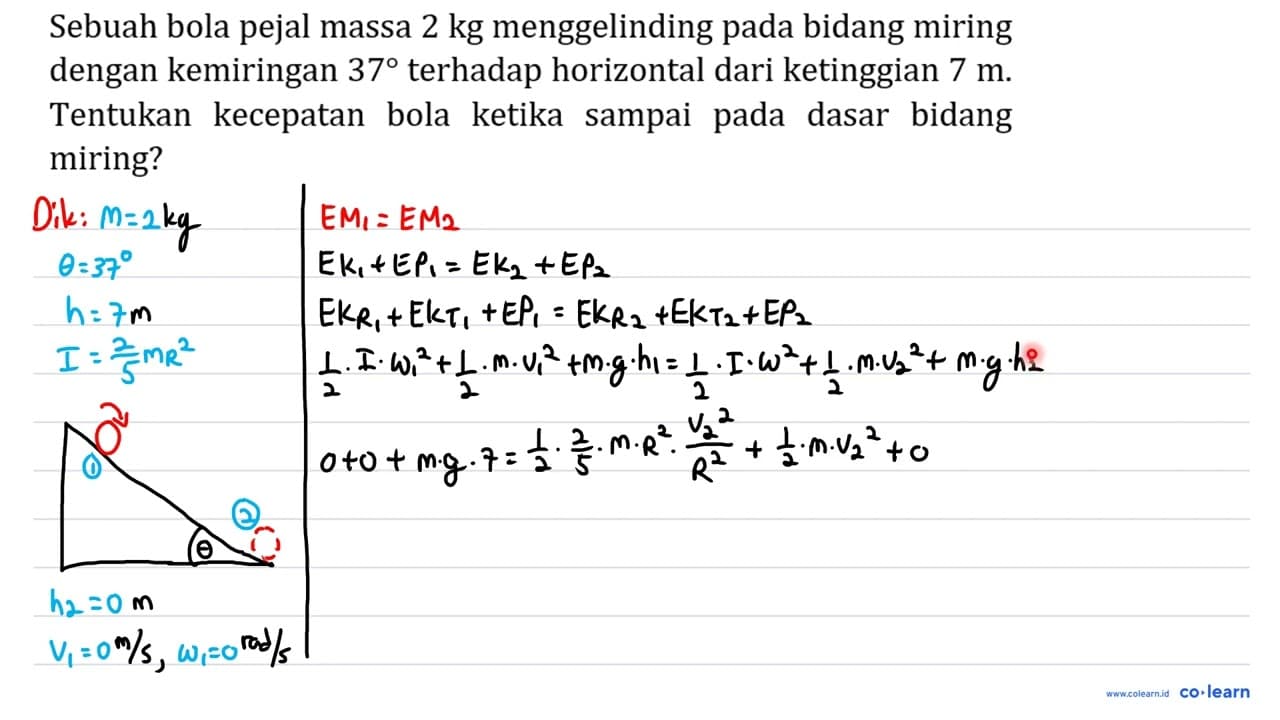 Sebuah bola pejal massa 2 kg menggelinding pada bidang miring
dengan kemiringan 37° terhadap horizontal dari ketinggian 7 m.
Tentukan kecepatan bola ketika sampai pada dasar bidang
miring?
Dik: m=2 kg
θ=37°
h=7 m
I = 2/5 mR²
①
②
θ
h₂=0 m
V₁=0 m/s, ω₁=0 rad/s
EM₁ = EM₂
EK₁ + EP₁ = EK₂ + EP₂
EKR₁ + EKT₁ + EP₁ = EKR₂ + EKT₂ + EP₂
1/2 . I . ω₁² + 1/2 . m . v₁² + m.g.h₁ = 1/2 . I . ω² + 1/2 . m.v₂² + m.g.h₂
0+0 + m.g.7 = 1/2 . 2/5 . m.R² . V₂²/R² + 1/2 . m.V₂² + 0
www.colearn.id co·learn